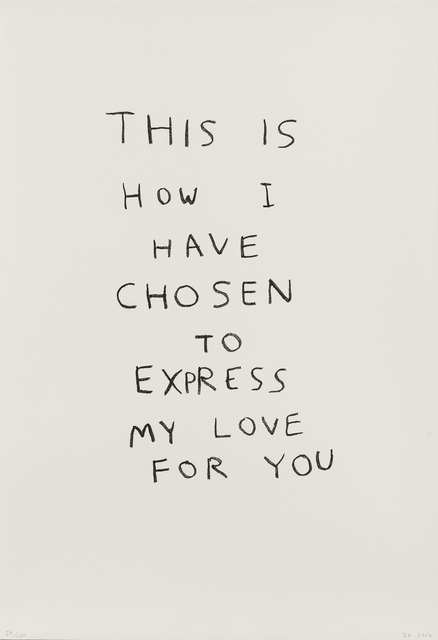 THIS IS
HOW I
HAVE
CHOSEN
TO
EXPRESS
MY LOVE
FOR YOU